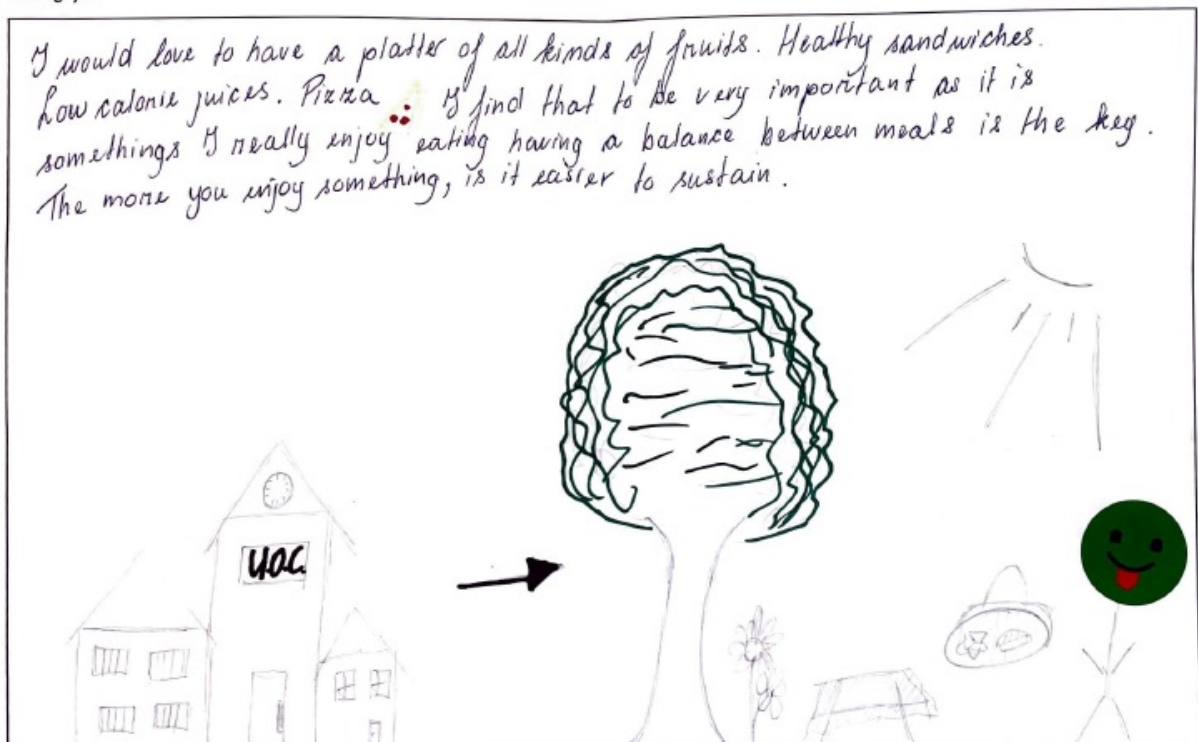 I would love to have a platter of all kinds of fruits. Healthy sandwiches.
Low calorie juices. Pizza I find that to be very important as it is
somethings I really enjoy eating having a balance between meals is the key.
The more you enjoy something, is it easier to sustain.
U.O.C.